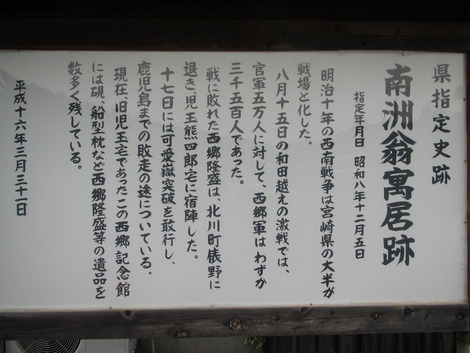 県指定史跡
南洲翁寓居跡
指定年月日 昭和八年十二月五日
明治十年の西南戦争は宮崎県の大半が
戦場と化した。
八月十五日の和田越えの激戦では、
官軍五万人に対して、西郷軍はわずか
三千五百人であった。
戦に敗れた西郷隆盛は、北川町俵野に
退き、児玉熊四郎宅に宿陣した。
十七日には可愛嶽突破を敢行し、
鹿児島までの敗走の途についている。
現在、旧児玉宅であったこの西郷記念館
には硯、船型枕など西郷隆盛等の遺品を
数多く残している。
平成十六年三月三十一日